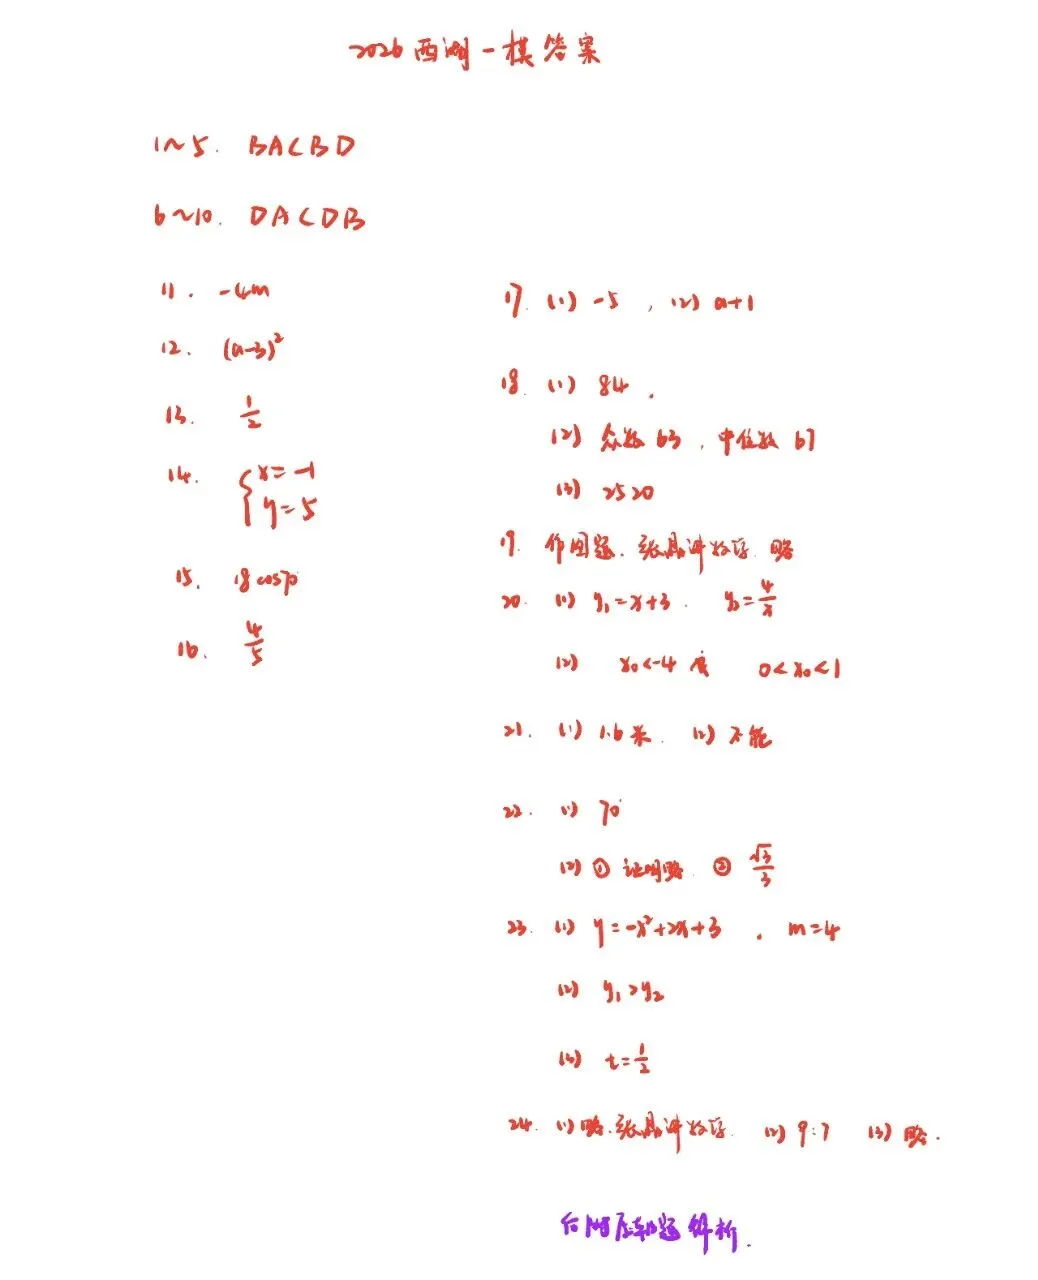 2026西湖一模答案
1~5. BACBD
6~10. DACDB
11. -4m
12. (a-3)²
13. 1/2
14. { x=-1
y=5
15. 18cos70°
16. 4/5
17. (1) -5 , (2) a+1
18. (1) 84 .
(2) 众数63 , 中位数67
(3) 2520
19. 作图题. 张晶讲数学. 略
20. (1) y₁=x+3. y₂=4/x
(2) x₀<-4 或 0<x₀<1
21. (1) 1.6米. (2) 不能
22. (1) 70°
(2) ① 证明略 ② √3/3
23. (1) y=-x²+2x+3 . m=4
(2) y₁>y₂
(3) t=1/2
24. (1) 略. 张晶讲数学. (2) 9:7 (3) 略.
后附压轴题解析.